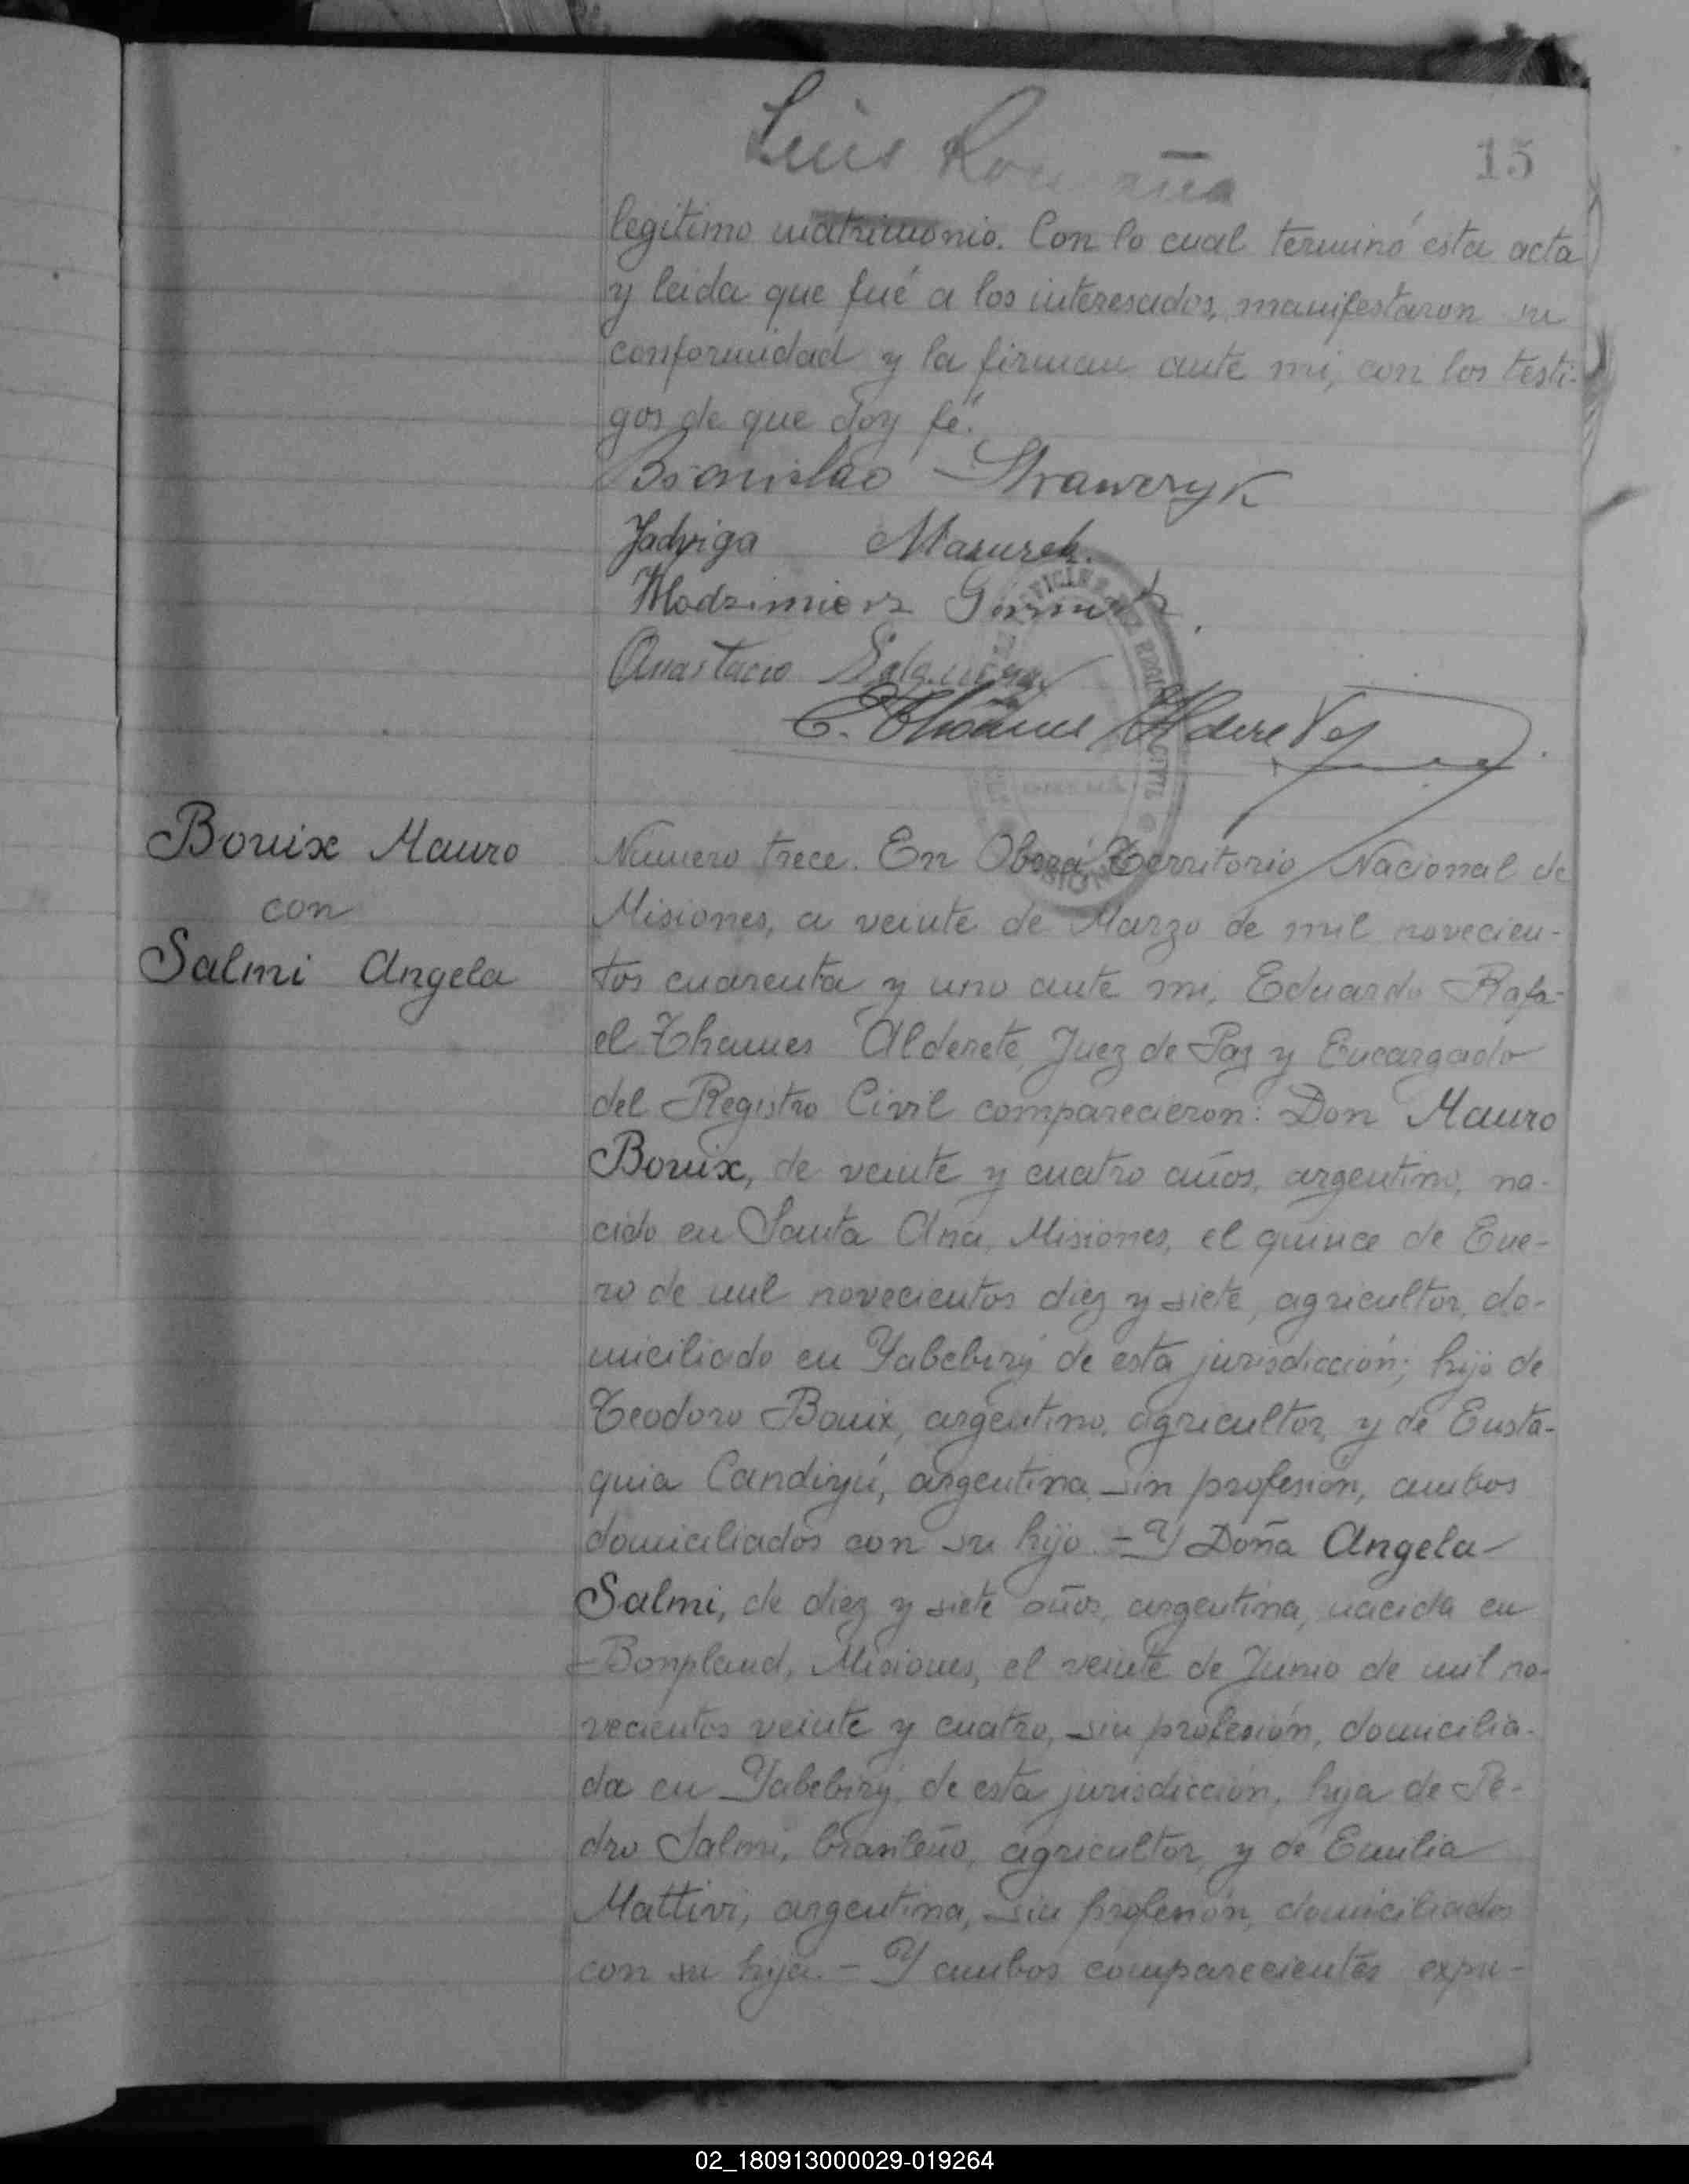 Luis
15
legitimo matrimonio. Con lo cual terminó esta acta
y leida que fué a los interesados, manifestaron su
conformidad y la firman ante mi, con los testi-
gos de que doy fé.
Bronislao Strawczyk
Jadviga Mazurek.
Wlodzimierz
Anastacio
E. Thames Alderete
Bouix Mauro
con
Salmi Angela
Numero trece. En Oberá Territorio Nacional de
Misiones, a veinte de Marzo de mil novecien-
tos cuarenta y uno ante mi, Eduardo Rafa-
el Thames Alderete, Juez de Paz y Encargado
del Registro Civil comparecieron: Don Mauro
Bouix, de veinte y cuatro años, argentino, na-
cido en Santa Ana, Misiones, el quince de Ene-
ro de mil novecientos diez y siete, agricultor, do-
miciliado en Yabebiry de esta jurisdicción; hijo de
Teodoro Bouix, argentino, agricultor, y de Eusta-
quia Candiyú, argentina sin profesión, ambos
domiciliados con su hijo. - Y Doña Angela
Salmi, de diez y siete años, argentina, nacida en
Bonpland, Misiones, el veinte de Junio de mil no-
vecientos veinte y cuatro, sin profesión, domicilia-
da en Yabebiry, de esta jurisdicción, hija de Pe-
dro Salmi, brasileño, agricultor, y de Emilia
Mattivi, argentina, sin profesión, domiciliados
con su hija. - Y ambos comparecientes expu-
02_180913000029-019264